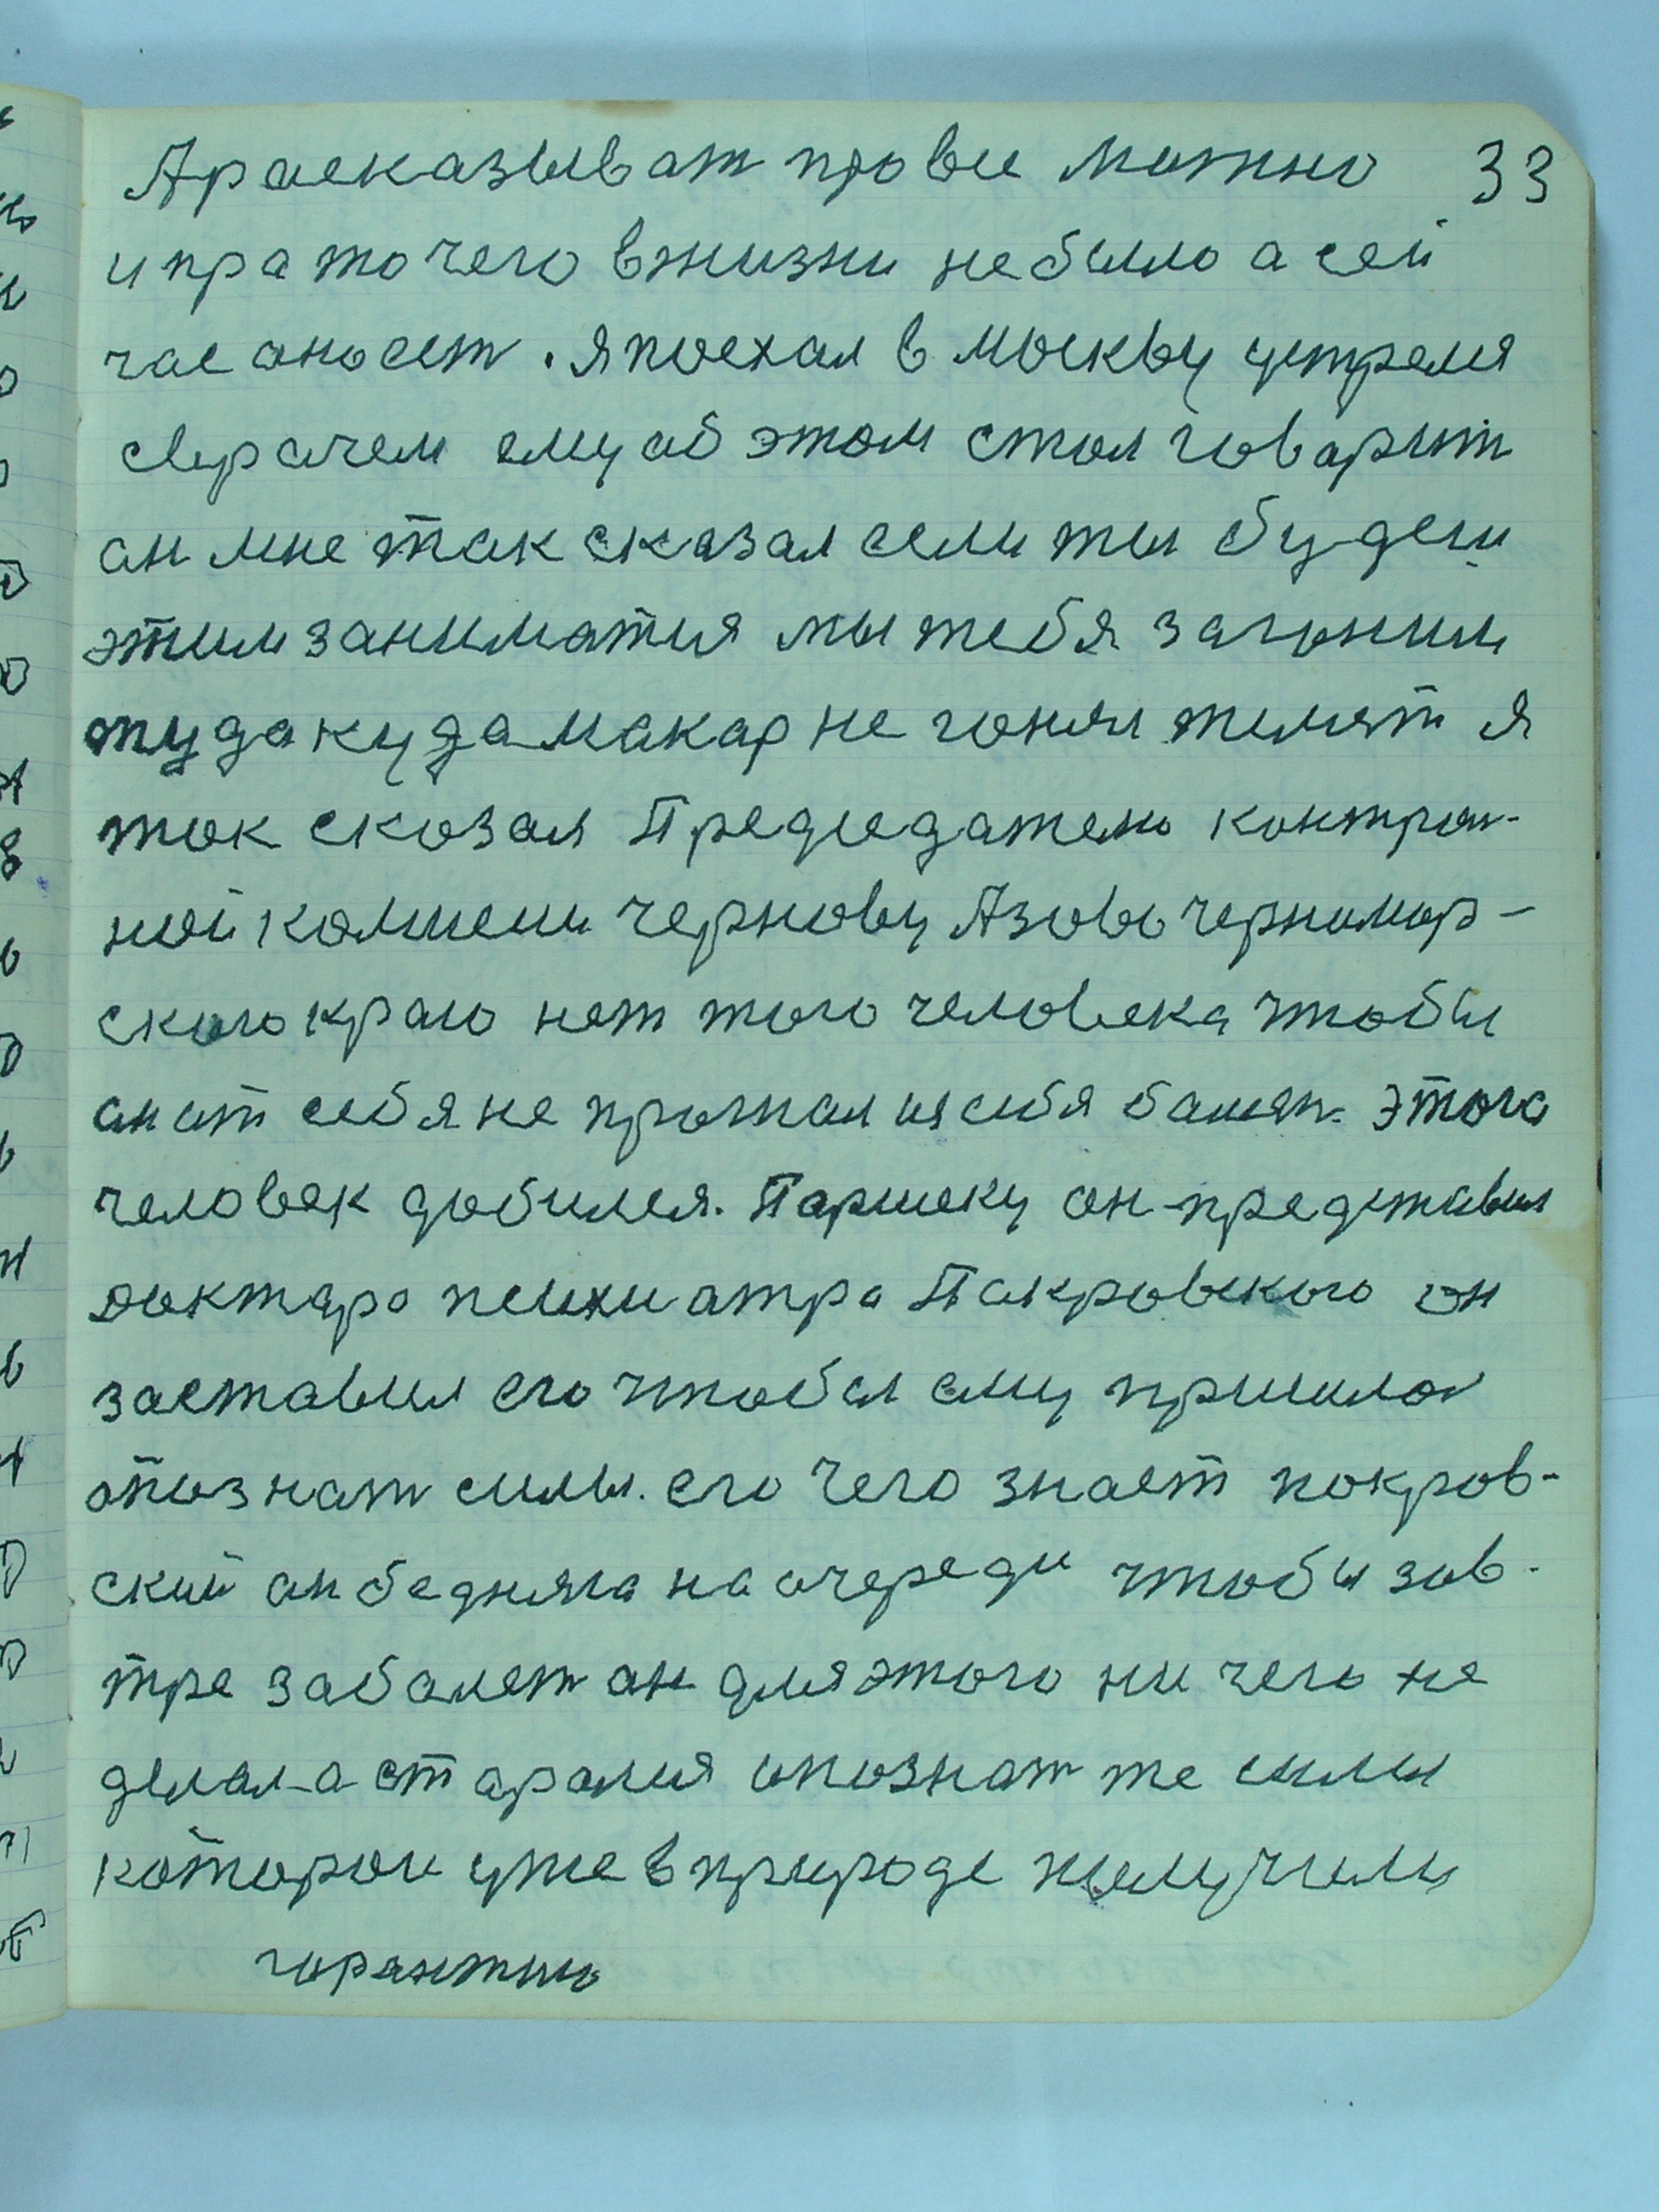 Арасказыват про все можно 33
и пра то чего в жизни небыло а сей
час оно ест. я поехал в Москву устреля
сврачем ему об этом стал говарит
ан мне так сказал если ты будеш
этим заниматия мы тебя загоним
туда куда макар не гонял телят я
так сказал Председателю контрол-
ной комисеи чернову Азово черномор-
ского краю нет того человека чтобы
ан от себя не прогнал из себя балезн. этога
человек добился. Паршеку он представил
доктара психиатра Пакровского он
заставил его чтобы ему пришлос
опознат силы. его чего знает покров-
ский ан бедняга на очереди чтобы зав-
тре заболет ан для этого ни чего не
делал а старался опознат те силы
которои уже в природе получили
горантию